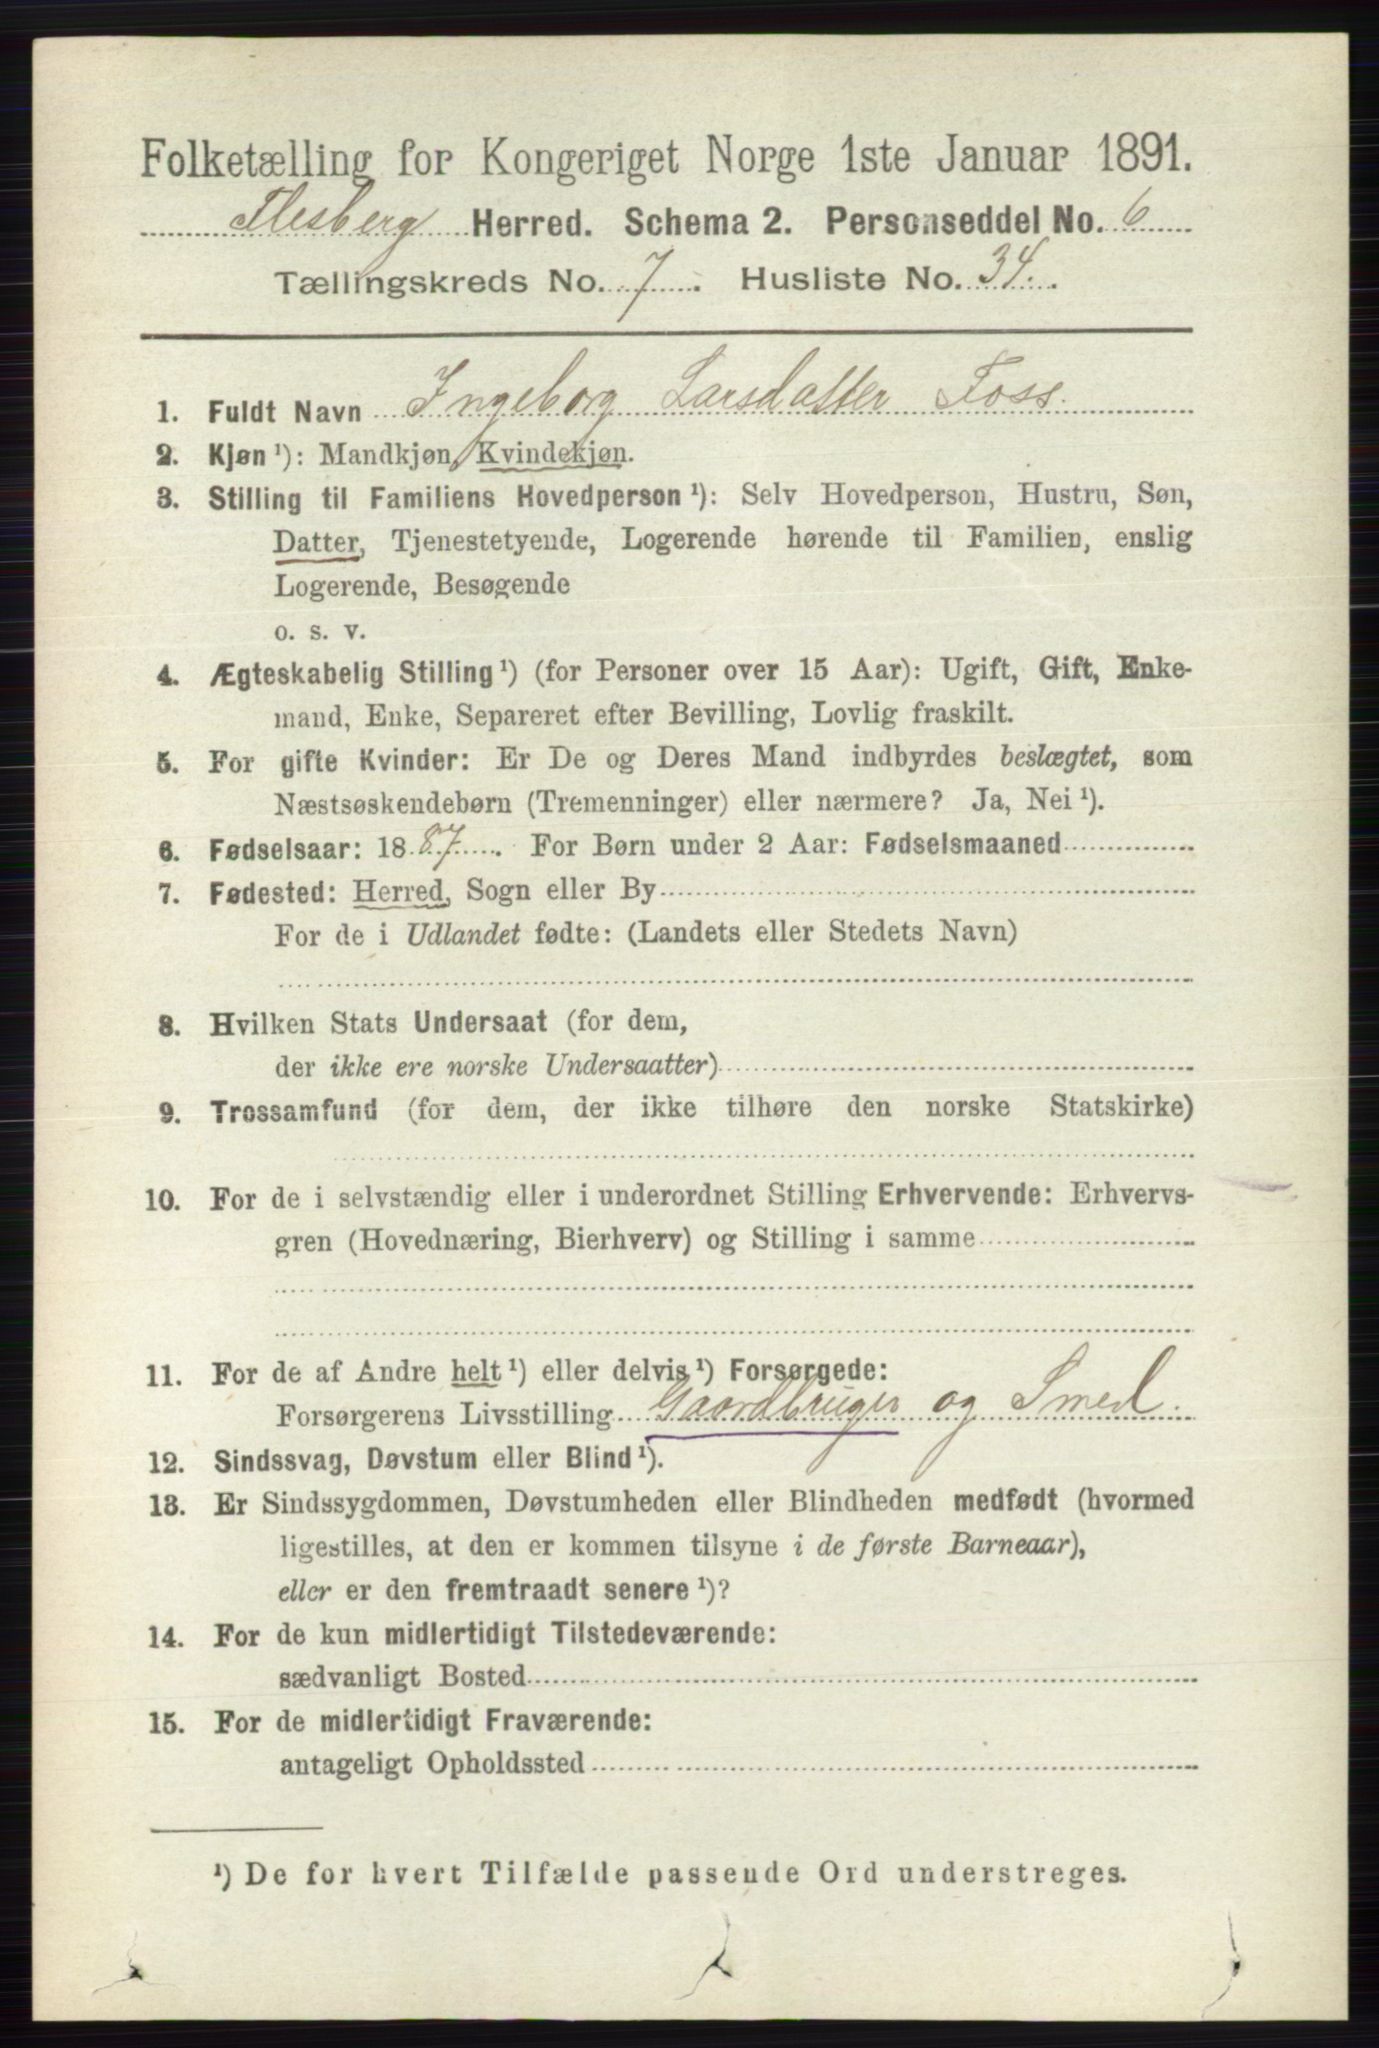 Folketælling for Kongeriget Norge 1ste Januar 1891.
Flesberg Herred. Schema 2. Personseddel No. 6
Tællingskreds No. 7. Husliste No. 34.
1. Fuldt Navn Ingeborg Larsdatter Foss.
2. Kjøn¹): Mandkjøn, Kvindekjøn.
3. Stilling til Familiens Hovedperson¹): Selv Hovedperson, Hustru, Søn,
Datter, Tjenestetyende, Logerende hørende til Familien, enslig
Logerende, Besøgende
o. s. v.
4. Ægteskabelig Stilling¹) (for Personer over 15 Aar): Ugift, Gift, Enke-
mand, Enke, Separeret efter Bevilling, Lovlig fraskilt.
5. For gifte Kvinder: Er De og Deres Mand indbyrdes beslægtet, som
Næstsøskendebørn (Tremenninger) eller nærmere? Ja, Nei¹).
6. Fødselsaar: 1887. For Børn under 2 Aar: Fødselsmaaned
7. Fødested: Herred, Sogn eller By
For de i Udlandet fødte: (Landets eller Stedets Navn)
8. Hvilken Stats Undersaat (for dem,
der ikke ere norske Undersaatter)
9. Trossamfund (for dem, der ikke tilhøre den norske Statskirke)
10. For de i selvstændig eller i underordnet Stilling Erhvervende: Erhvervs-
gren (Hovednæring, Bierhverv) og Stilling i samme
11. For de af Andre helt¹) eller delvis¹) Forsørgede:
Forsørgerens Livsstilling Gaardbruger og Smed.
12. Sindssvag, Døvstum eller Blind¹).
13. Er Sindssygdommen, Døvstumheden eller Blindheden medfødt (hvormed
ligestilles, at den er kommen tilsyne i de første Barneaar),
eller er den fremtraadt senere¹)?
14. For de kun midlertidigt Tilstedeværende:
sædvanligt Bosted
15. For de midlertidigt Fraværende:
antageligt Opholdssted
¹) De for hvert Tilfælde passende Ord understreges.